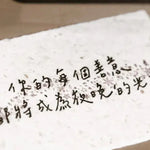 你的每個善意
都將成為夜晚的光